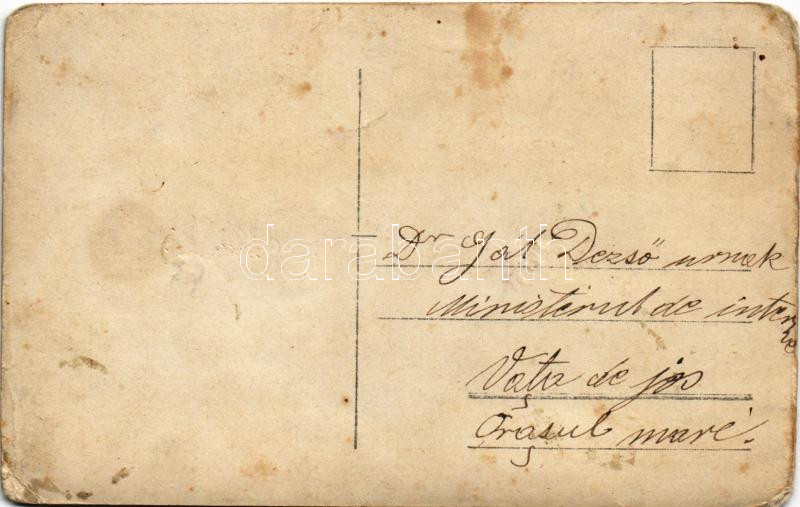 Dr Gál Dezső urnak
Ministerul de interne
Vața de jos
Orașul mare.
darabanth